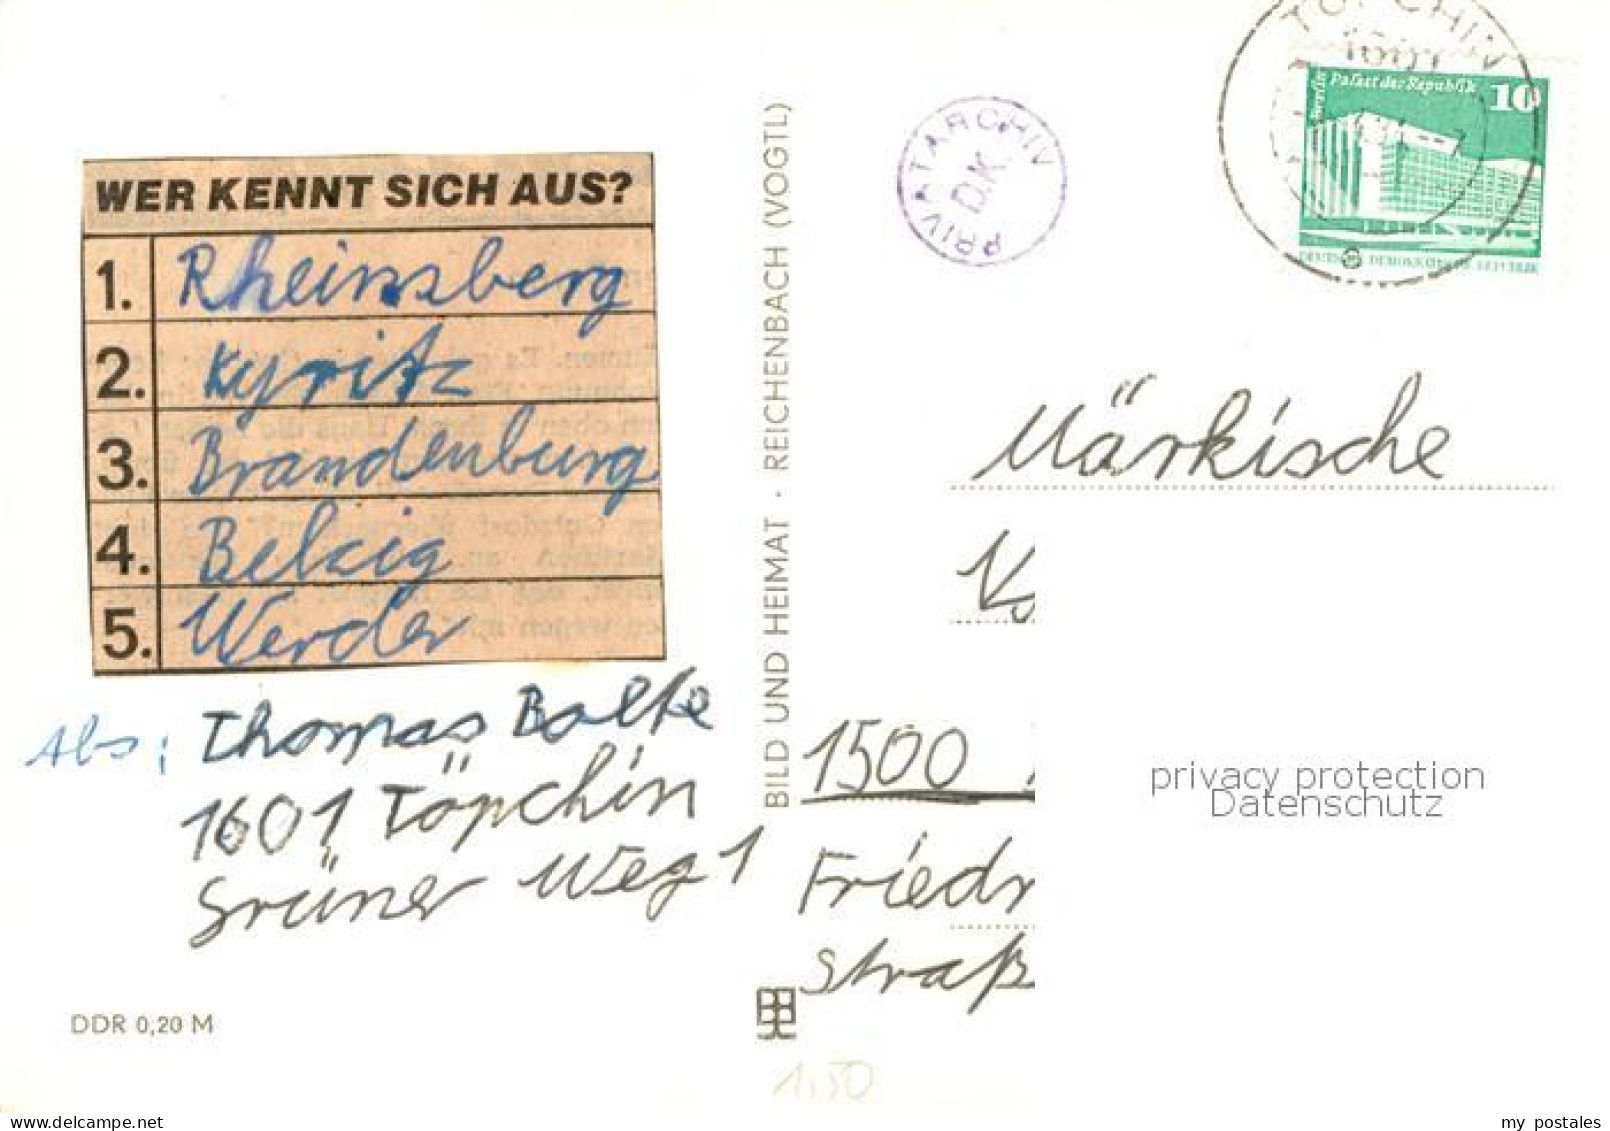 WER KENNT SICH AUS?
1. Rheinsberg
2. Kyritz
3. Brandenburg
4. Belzig
5. Werder
Abs: Thomas Bolte
1601 Töpchin
Grüner Weg 1
DDR 0,20 M
BILD UND HEIMAT · REICHENBACH (VOGTL)
PRIVATARCHIV
D.K.
TÖPCHIN
1601
Berlin
Palast der Republik
10
DEUTSCHE DEMOKRATISCHE REPUBLIK
Märkische
1500
Friedr
Straß
1,50
privacy protection
Datenschutz
www.delcampe.net
my_postales